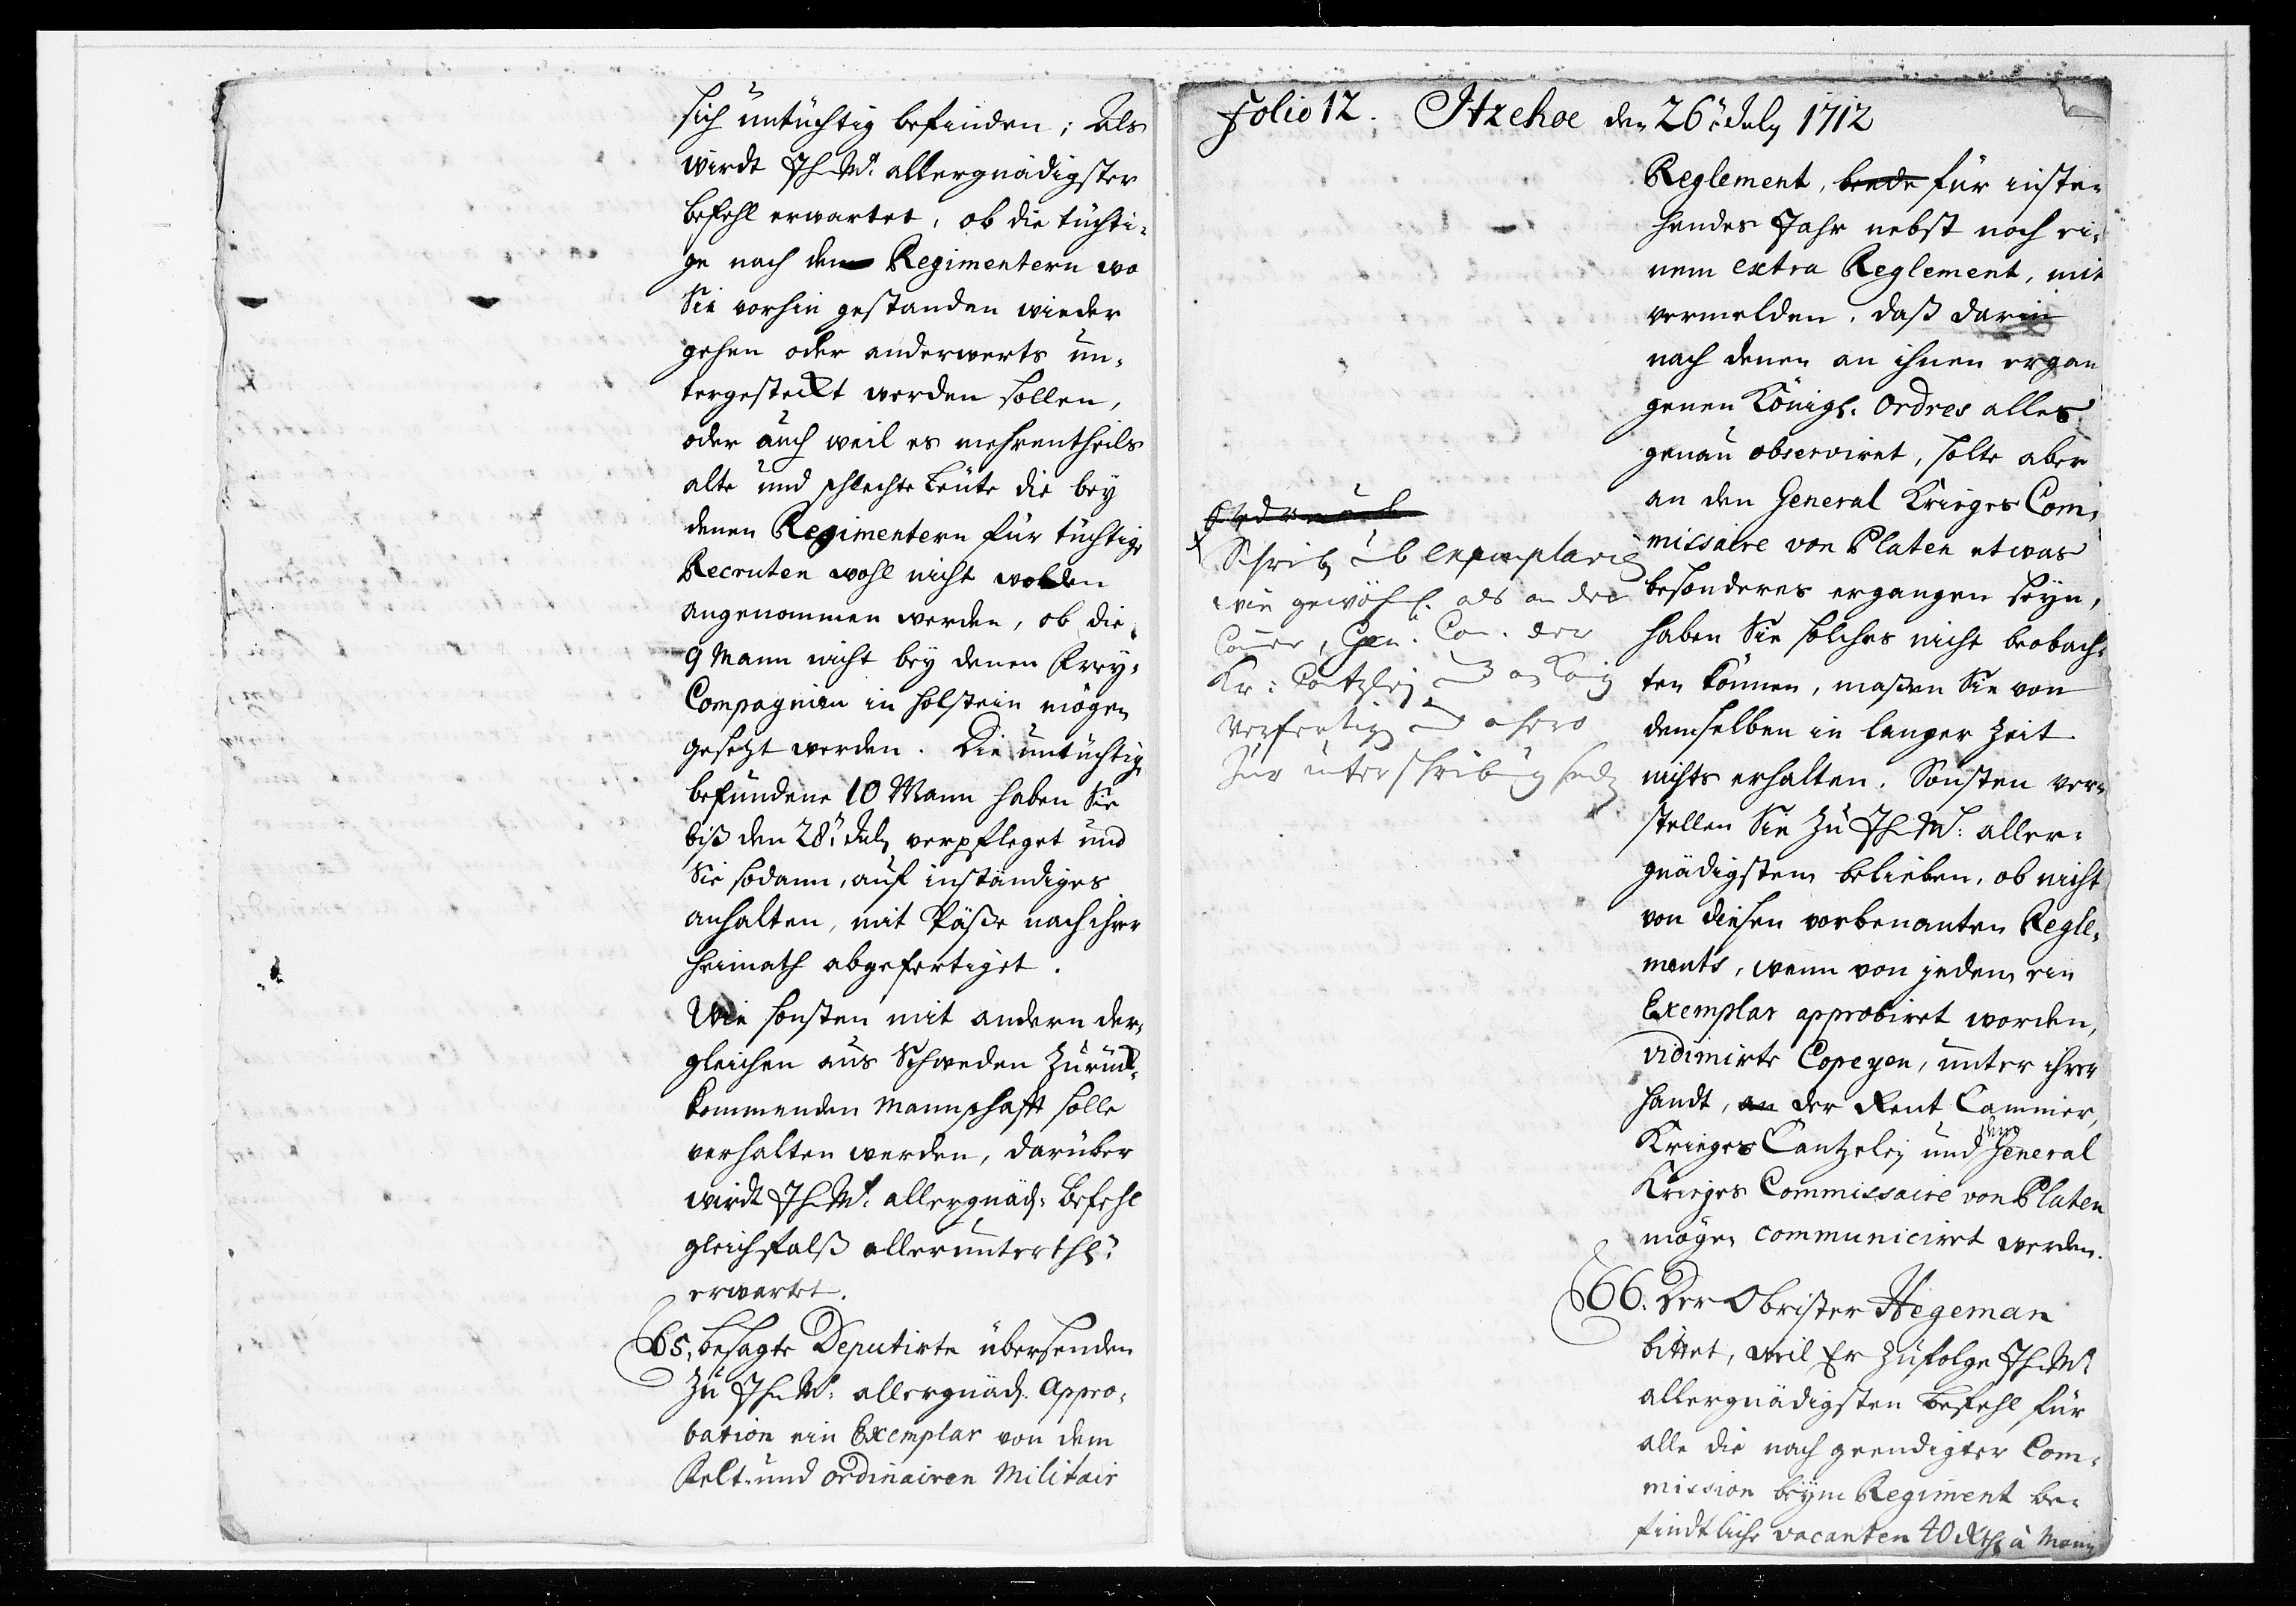 sich untüchtig befinden; Als
wirdt Ih. Mt. allergnädigster
befehl erwartet, ob die tüchti-
ge nach den Regimentern wo
Sie vorhin gestanden wieder
gehen oder anderwerts un-
tergesteckt werden sollen,
oder auch weil es mehrentheils
alte und schlechte Leute die bey
denen Regimentern für tüchtige
Recruten wohl nicht wolden
angenommen werden, ob die
9 Mann nicht bey denen Frey-
Compagnien in Holstein mögen
gesetzt werden. Die untüchtig
befundene 10 Mann haben Sie
biß den 28n July verpfleget und
Sie sodann, auf inständiges
anhalten, mit Päße nach ihrer
Heimath abgefertiget.
Wie sonsten mit andern der-
gleichen aus Schweden zurück-
kommenden Mannschafft solle
verhalten werden, darüber
wirdt Ih. Mt. allergnäd: befehl
gleichfalß allerunterth:
erwartet.
65, besagte Deputirte übersenden
zu Ih. Mt: allergnäd. Appro-
bation ein Exemplar von dem
Felt- und ordinairen Militair
Folio 12. Itzehoe den 26n July 1712
Reglement, beede für inste-
hendes Jahr nebst noch ei-
nem extra Reglement, mit
vermelden, daß darin
nach denen an ihnen ergan
genen Königl. Ordres alles
genau observiret, solte aber
an den General Krieges Com-
missaire von Platen etwas
besonderes ergangen seyn,
haben Sie solches nicht beobach-
ten können, maßen Sie von
demselben in langer Zeit
nichts erhalten. Sonsten ver-
stellen Sie zu Ih. Mt: aller-
gnädigstem belieben, ob nicht
von diesen vorbenanten Regle-
ments, wenn von jedem ein
Exemplar approbiret worden,
vidimirte Copeyen, unter ihrer
Handt, an der Rent Cammer,
Krieges Cantzeley und dem General
Krieges Commissaire von Platen
mögen communiciret werden.
Exemplaria
wie gewöhnl. als an der
Kr: Cantzley
verfertig
Zur unterschreibung
66. Der Obrister Hegeman
bittet, weil Er zufolge Ih. Mt.
allergnädigsten befehl für
alle die nach geendigter Com-
mission beym Regiment be-
findtliche vacanten 40 Rth à Mann